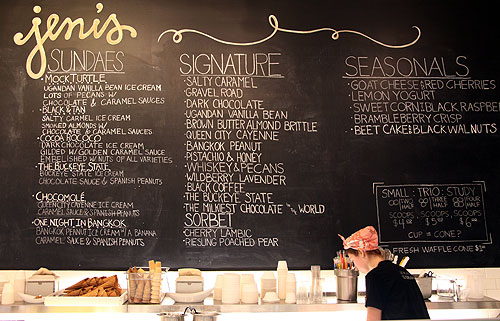 jeni's
SUNDAES
•MOCK TURTLE
UGANDAN VANILLA BEAN ICE CREAM
LOTS OF PECANS W/
CHOCOLATE & CARAMEL SAUCES
•BLACK & TAN
SALTY CARMEL ICE CREAM
SMOKED ALMONDS W/
CHOCOLATE & CARAMEL SAUCES
•COCOA ROCOCO
DARK CHOCOLATE ICE CREAM
GILDED W/ GOLDEN CARAMEL SAUCE
EMBELISHED W/ NUTS OF ALL VARIETIES
•THE BUCKEYE STATE
BUCKEYE STATE ICE CREAM
CHOCOLATE SAUCE & SPANISH PEANUTS
•CHOCOMOLÉ
QUEEN CITY CAYENNE ICE CREAM
CARAMEL SAUCE & SPANISH PEANUTS
•ONE NIGHT IN BANGKOK
BANGKOK PEANUT ICE CREAM W/ A BANANA
CARAMEL SAUCE & SPANISH PEANUTS
SIGNATURE
•SALTY CARAMEL
•GRAVEL ROAD
•DARK CHOCOLATE
•UGANDAN VANILLA BEAN
•BROWN BUTTER ALMOND BRITTLE
•QUEEN CITY CAYENNE
•BANGKOK PEANUT
•PISTACHIO & HONEY
•WHISKEY & PECANS
•WILDBERRY LAVENDER
•BLACK COFFEE
•THE BUCKEYE STATE
•THE MILKIEST CHOCOLATE IN THE WORLD
SORBET
•CHERRY LAMBIC
•RIESLING POACHED PEAR
SEASONALS
•GOAT CHEESE & RED CHERRIES
•LEMON YOGURT
•SWEET CORN & BLACK RASPBE
•BRAMBLEBERRY CRISP
•BEET CAKE & BLACK WALNUTS
SMALL : TRIO : STUDY
SCOOPS SCOOPS SCOOPS
CUP or CONE ?
FRESH WAFFLE CONE $1